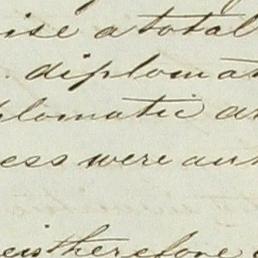 ise a total
diplomat
plomatic a
ess were au
therefore